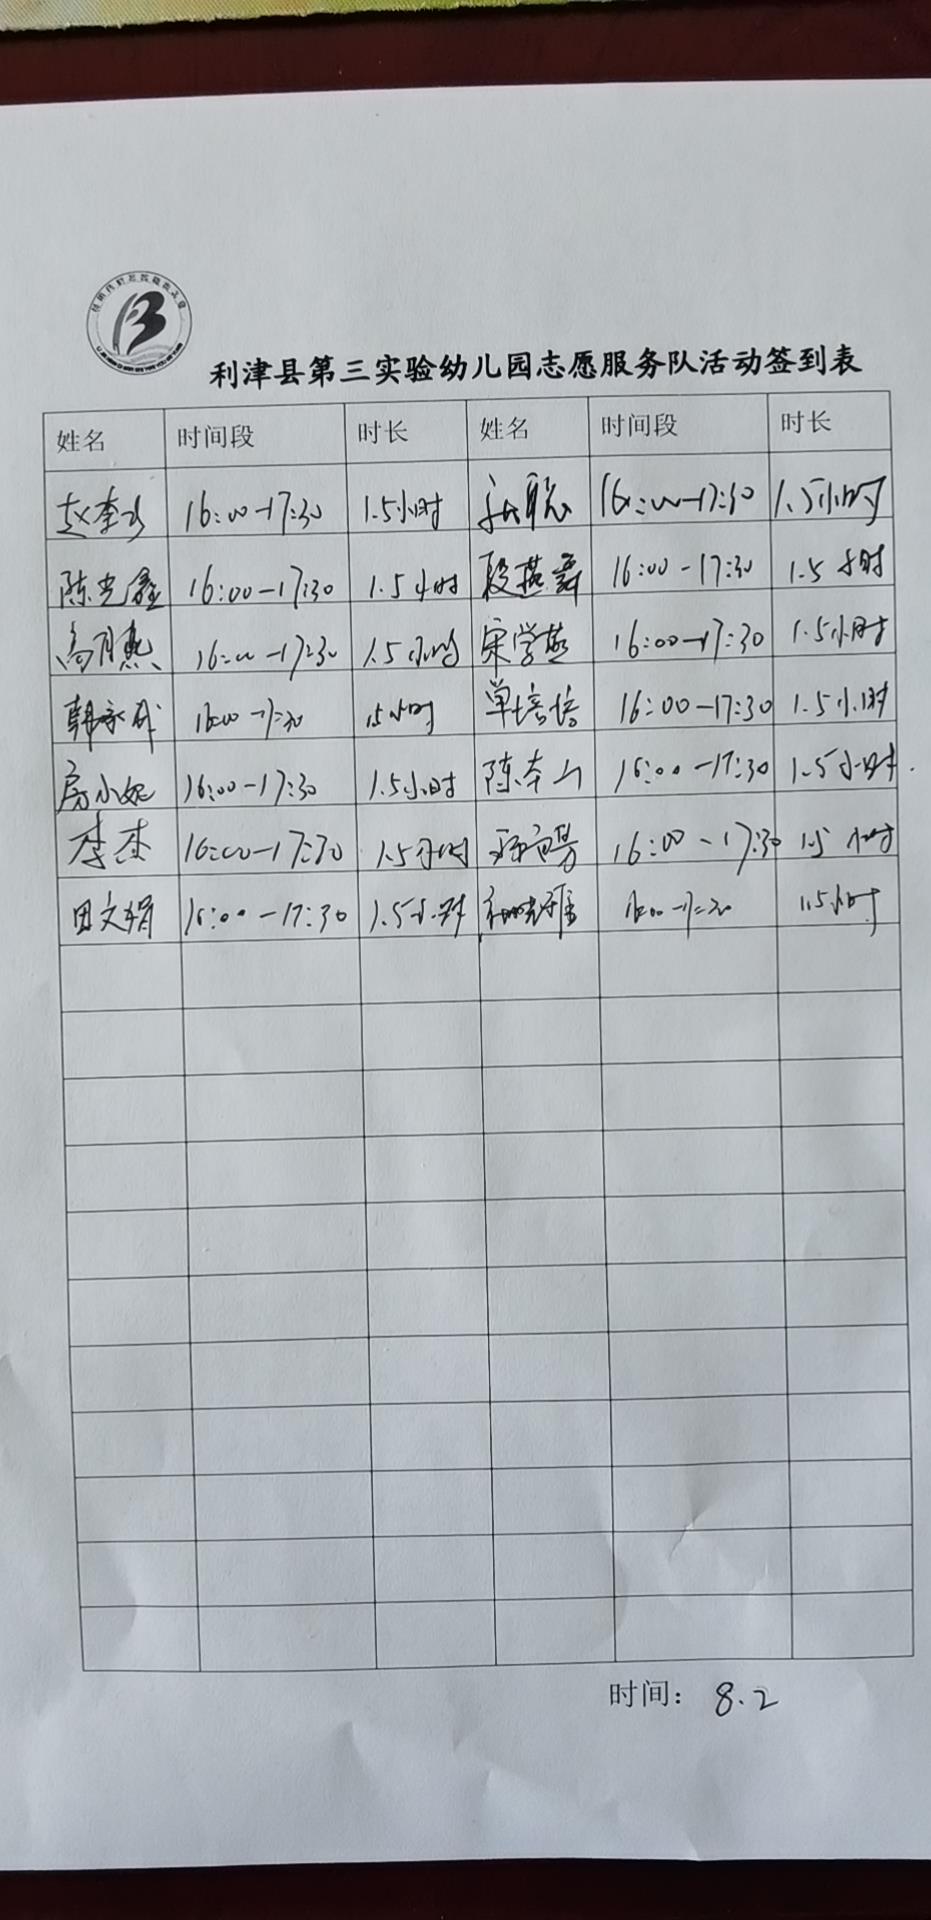 利津县第三实验幼儿园志愿服务队活动签到表
姓名 时间段 时长 姓名 时间段 时长
16:00-17:30 1.5小时 张聪 16:00-17:30 1.5小时
陈光鑫 16:00-17:30 1.5小时 段燕舞 16:00-17:30 1.5小时
高月燕 16:00-17:30 1.5小时 宋学燕 16:00-17:30 1.5小时
韩 16:00-17:30 1.5小时 单培培 16:00-17:30 1.5小时
房小妮 16:00-17:30 1.5小时 陈奉山 16:00-17:30 1.5小时.
李杰 16:00-17:30 1.5小时 16:00-17:30 1.5小时
田文娟 16:00-17:30 1.5小时 16:00-17:30 1.5小时
时间: 8.2